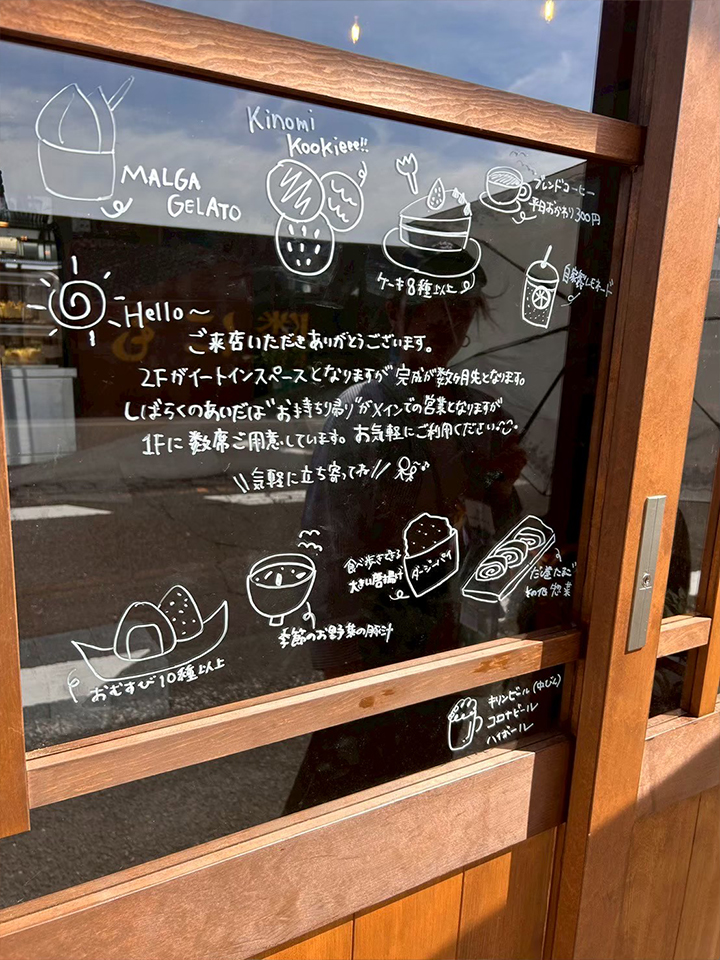 Kinomi
Kookieee!!
MALGA
GELATO
ブレンドコーヒー
平日おかわり300円
ケーキ8種以上
自家製レモネード
Hello〜
ご来店いただきありがとうございます。
2Fがイートインスペースとなりますが 完成が数ヶ月先となります。
しばらくのあいだは"お持ち帰り"がメインでの営業となりますが
1Fに数席ご用意しています。お気軽にご利用ください
\\気軽に立ち寄ってね//
食べ歩きできる
大きい唐揚げ
ダージーパイ
だし巻たまご
惣菜
季節のお野菜の豚汁
おむすび10種以上
キリンビール(中びん)
コロナビール
ハイボール